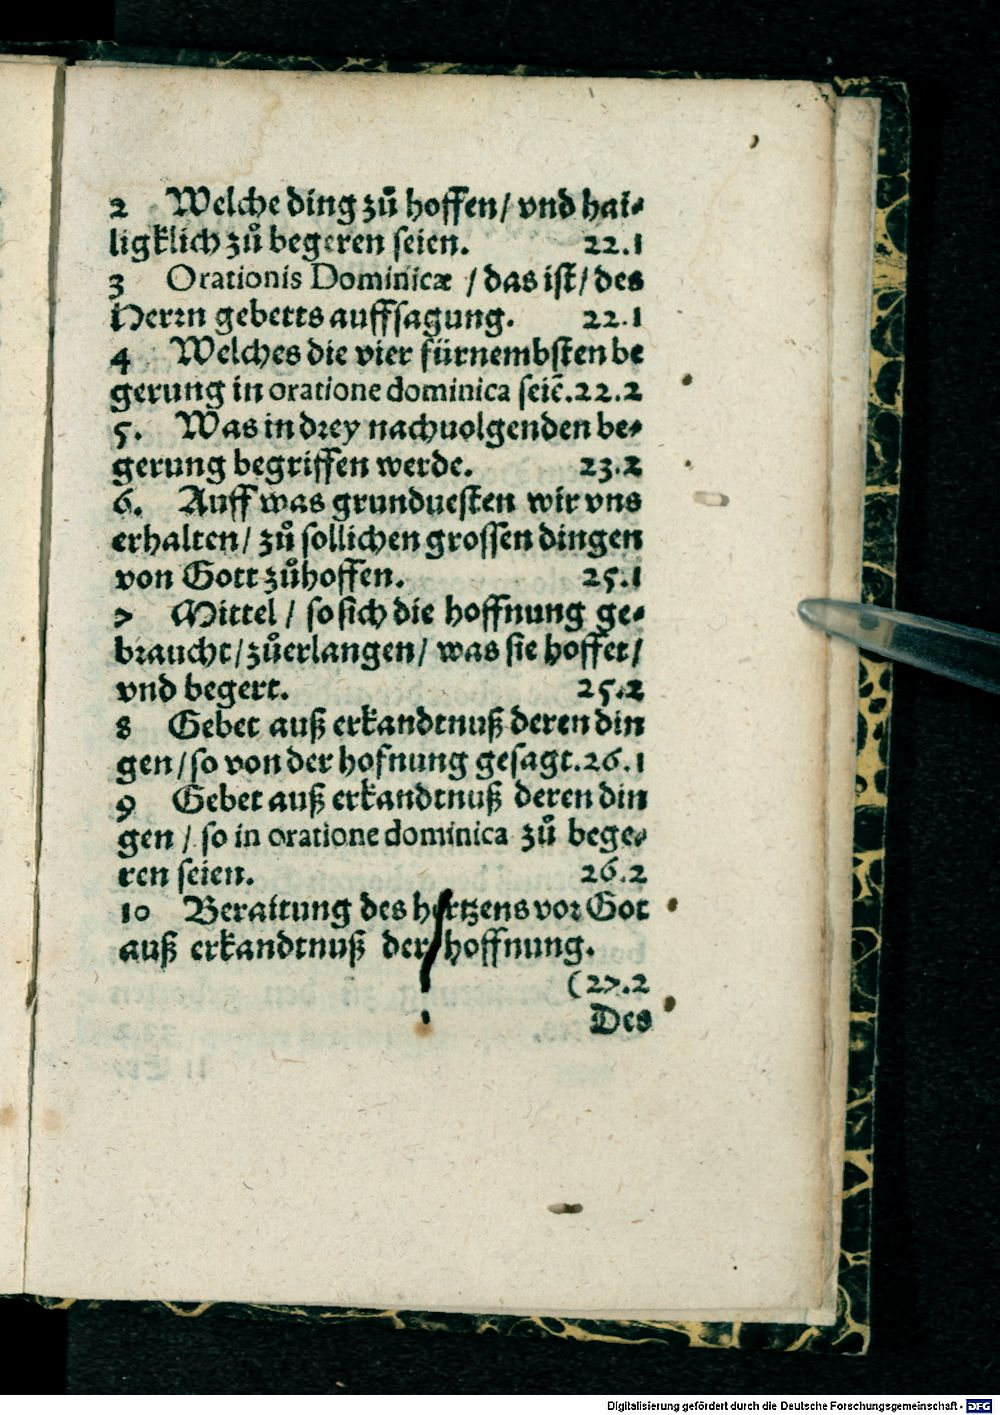 2 Welche ding zů hoffen/ vnd hai-
ligklich zů begeren seien. 22.1
3 Orationis Dominicæ / das ist/ des
Herrn gebetts auffsagung. 22.1
4 Welches die vier fürnembsten be
gerung in oratione dominica seiē. 22.2
5. Was in drey nachuolgenden be-
gerung begriffen werde. 23.2
6. Auff was grunduesten wir vns
erhalten/ zů sollichen grossen dingen
von Gott zůhoffen. 25.1
7 Mittel / so sich die hoffnung ge-
braucht/ zůerlangen/ was sie hoffet/
vnd begert. 25.2
8 Gebet auß erkandtnuß deren din
gen/ so von der hofnung gesagt. 26.1
9 Gebet auß erkandtnuß deren din
gen / so in oratione dominica zů bege-
ren seien. 26.2
10 Beraitung des hertzens vor Got
auß erkandtnuß der hoffnung.
(27.2
Des
Digitalisierung gefördert durch die Deutsche Forschungsgemeinschaft - DFG